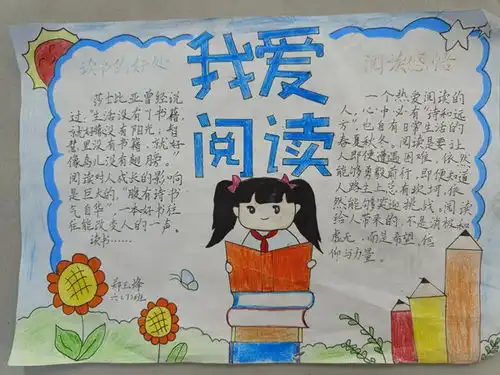 我爱
阅读
读书的好处
莎士比亚曾经说
过，“生活没有了书籍，
就好像没有阳光；智
慧里没有书籍，就好
像鸟儿没有翅膀。”
阅读对人成长的影响
是巨大的，“腹有诗书
气自华”，一本好书往
往能改变人的一声。
读书……
郑玉
六(7)班
阅读感悟
一个热爱阅读的
人，心中必有“诗和远
方”，也自有日常生活的
春夏秋冬。阅读是要让
人即使遭遇困难，依然
能够勇毅前行，即使知道
人路上上总有坎坷，依
然能够笑迎挑战。阅读
给人带来的，不是消极和
虚无，而是希望、信
仰与力量。